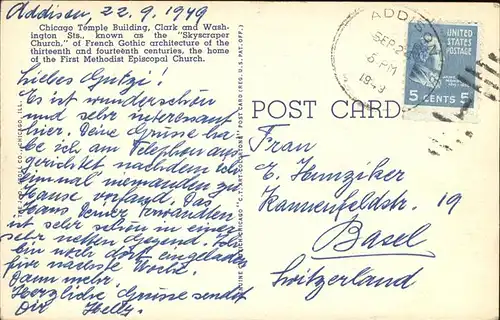 Addison, 22. 9. 1949
Chicago Temple Building, Clark and Wash-
ington Sts., known as the "Skyscraper
Church," of French Gothic architecture of the
thirteenth and fourteenth centuries, the home
of the First Methodist Episcopal Church.
Liebes Gritzi!
Es ist wunderschön
und sehr interessant
hier. Deine Grüsse ha-
be ich am Telephon aus-
gerichtet nachdem ich
einmal niemanden zu
Hause vorfand. Das
Haus Deiner Verwandten
ist sehr schön in einer
sehr netten Gegend. Ich
bin noch dort eingeladen
für nächste Woche.
Dann mehr.
Herzliche Grüsse sendet
Dir Helly.
POST CARD
ADDISON
SEP 2
5 PM
1949
UNITED STATES
POSTAGE
5 CENTS 5
Frau
E. Hunziker
Kannenfeldstr. 19
Basel
Switzerland